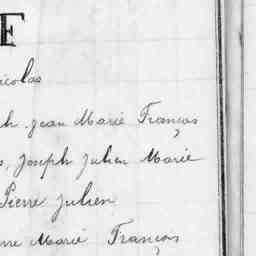 F
icolas
h Jean Marie François
Joseph Julien Marie
Pierre Julien
Marie François